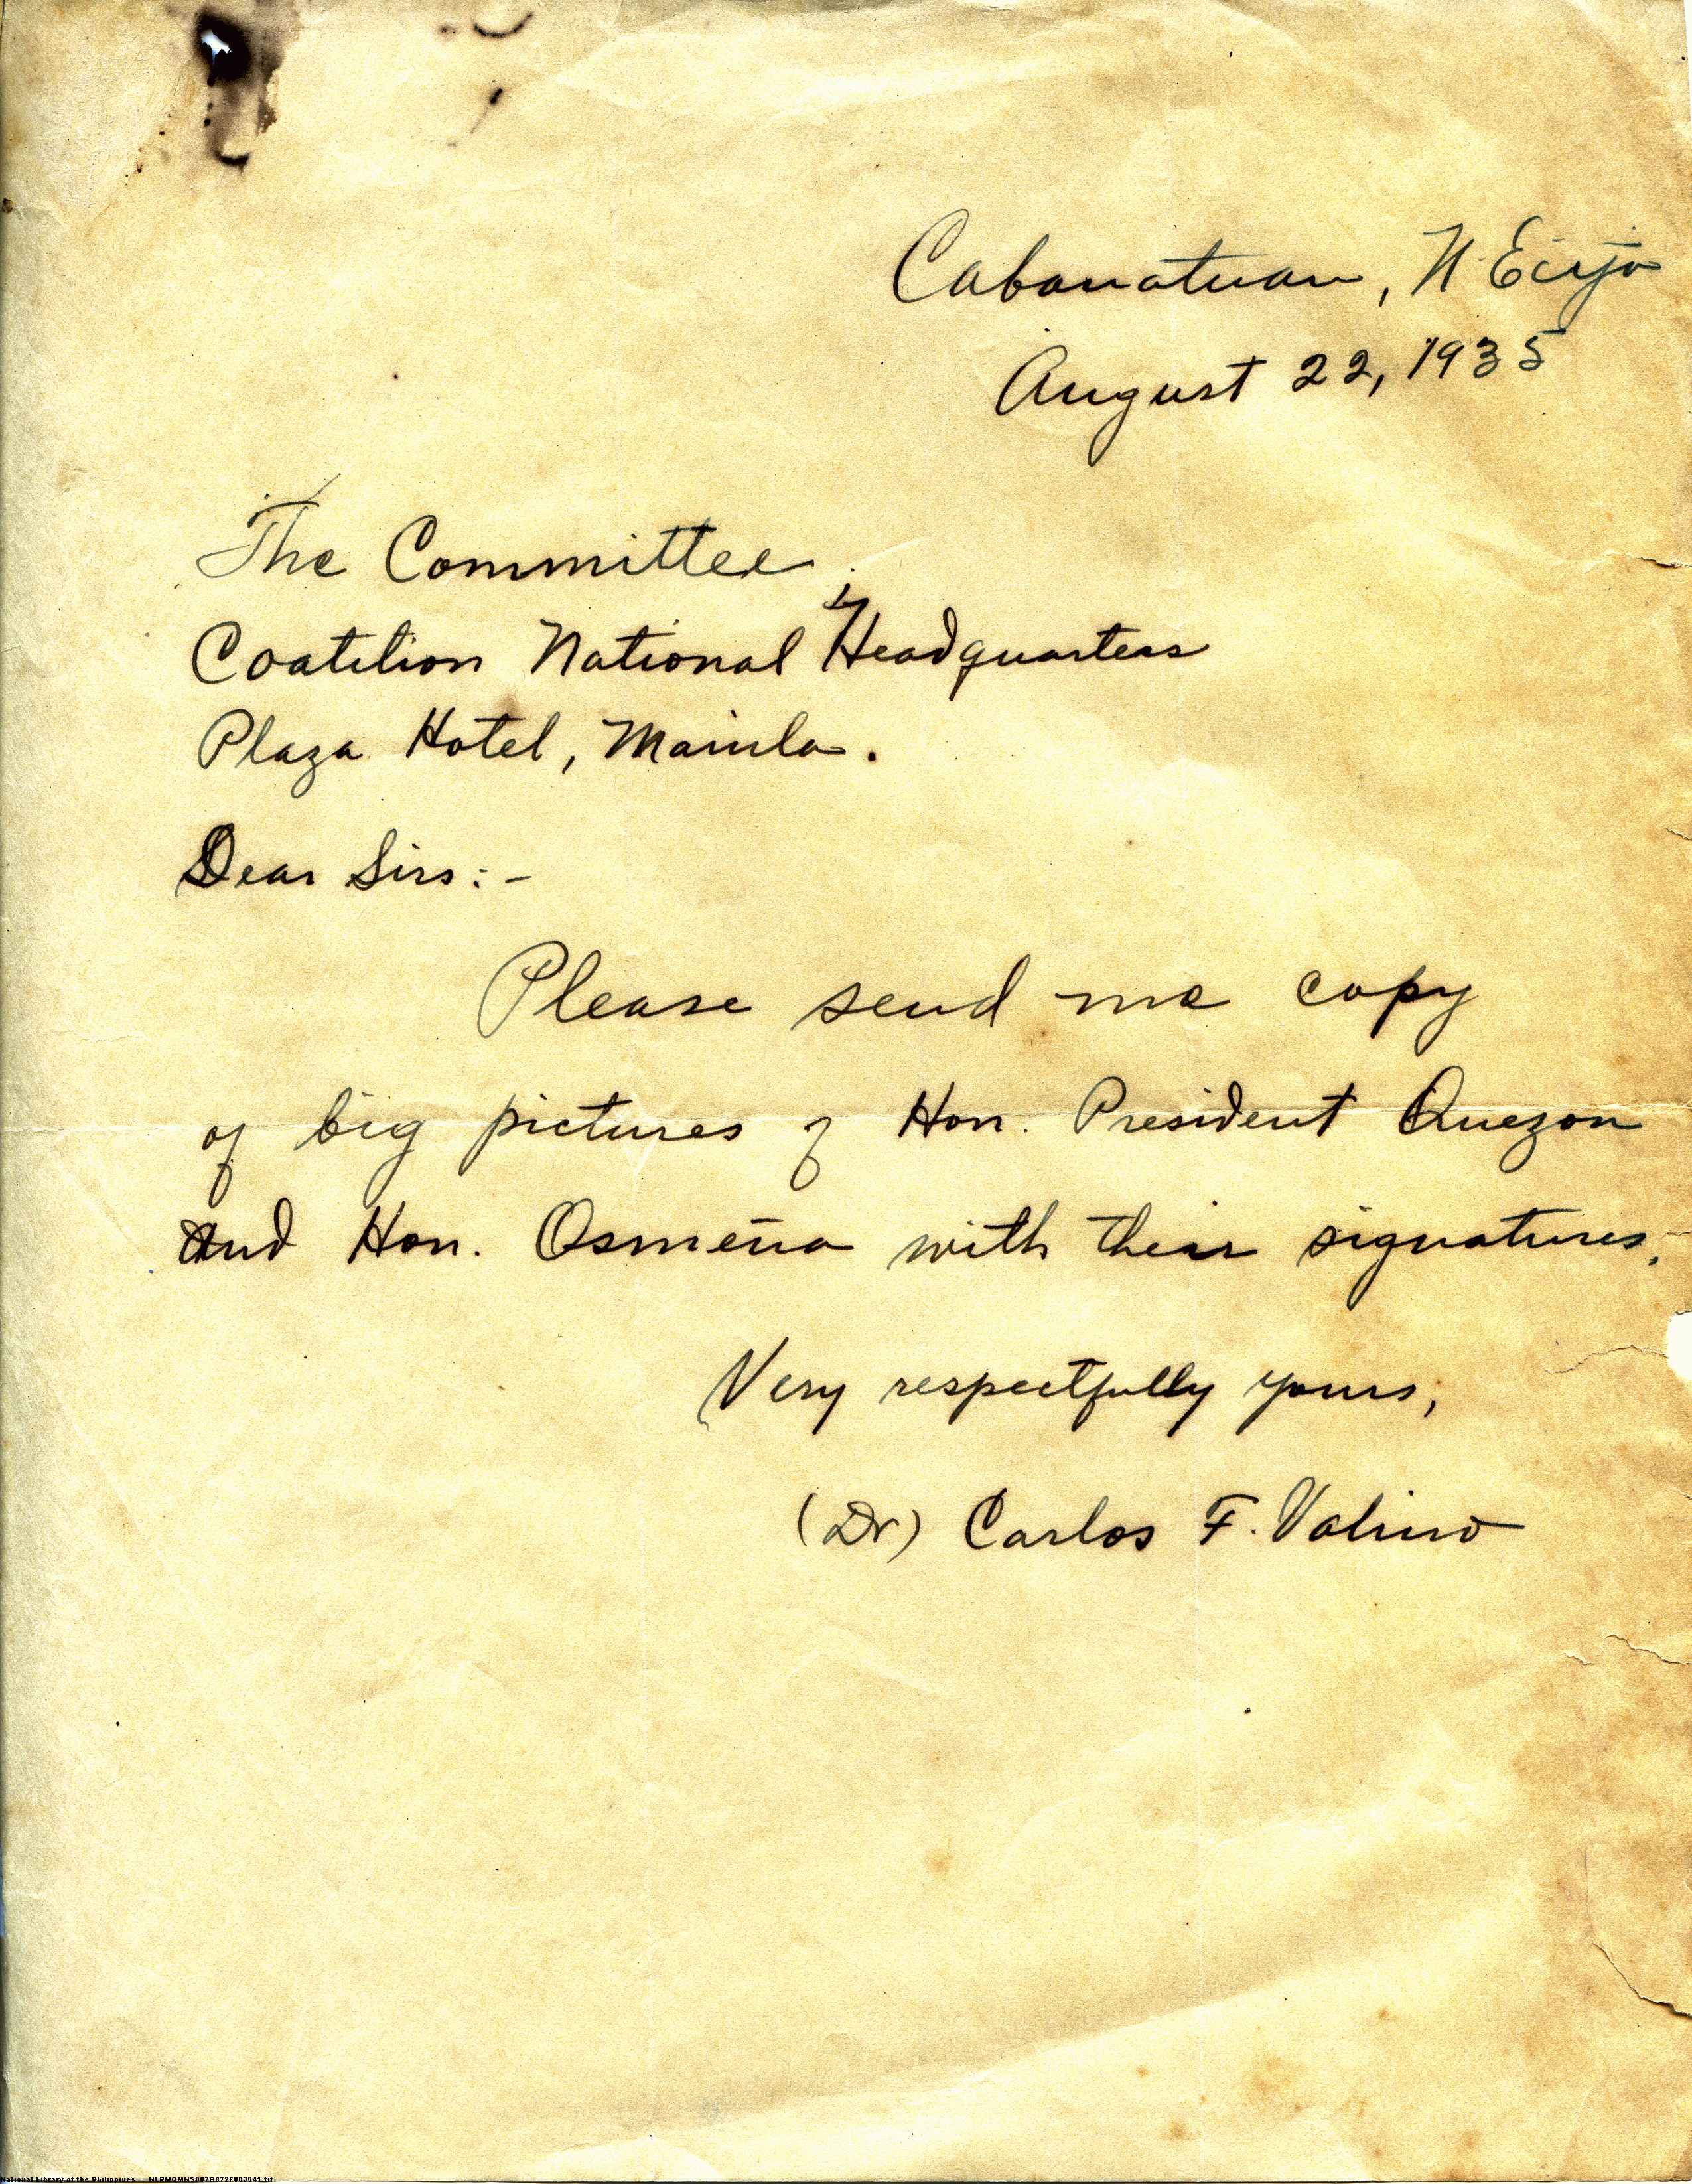 Cabanatuan, N. Ecija
August 22, 1935
The Committee
Coatilion National Headquarters
Plaza Hotel, Mainla.
Dear Sirs:-
Please send me copy
of big pictures of Hon. President Quezon
and Hon. Osmeña with their signatures.
Very respectfully yours,
(Dr) Carlos F. Valino
National Library of the Philippines NLPMQMNS007B072F003041.tif